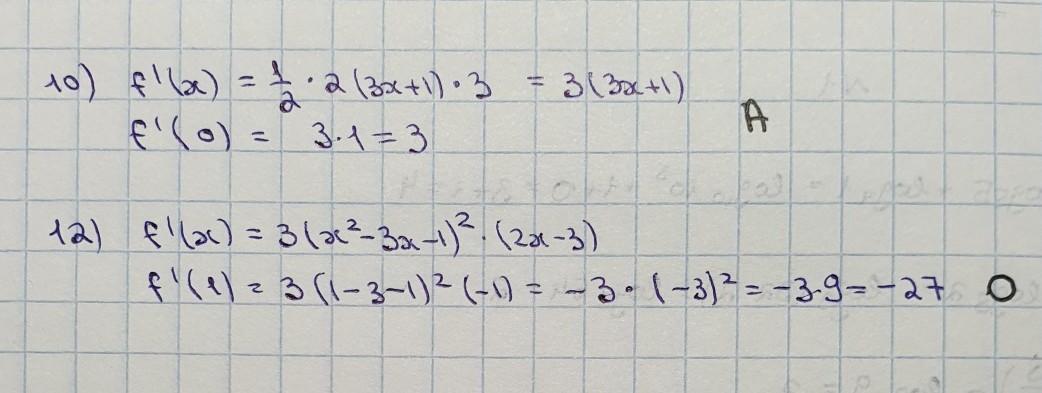 10) f'(x) = 1/2 · 2(3x+1) · 3 = 3(3x+1)
f'(0) = 3·1 = 3
A
12) f'(x) = 3(x²-3x-1)² · (2x-3)
f'(1) = 3(1-3-1)² (-1) = -3 · (-3)² = -3·9 = -27 O